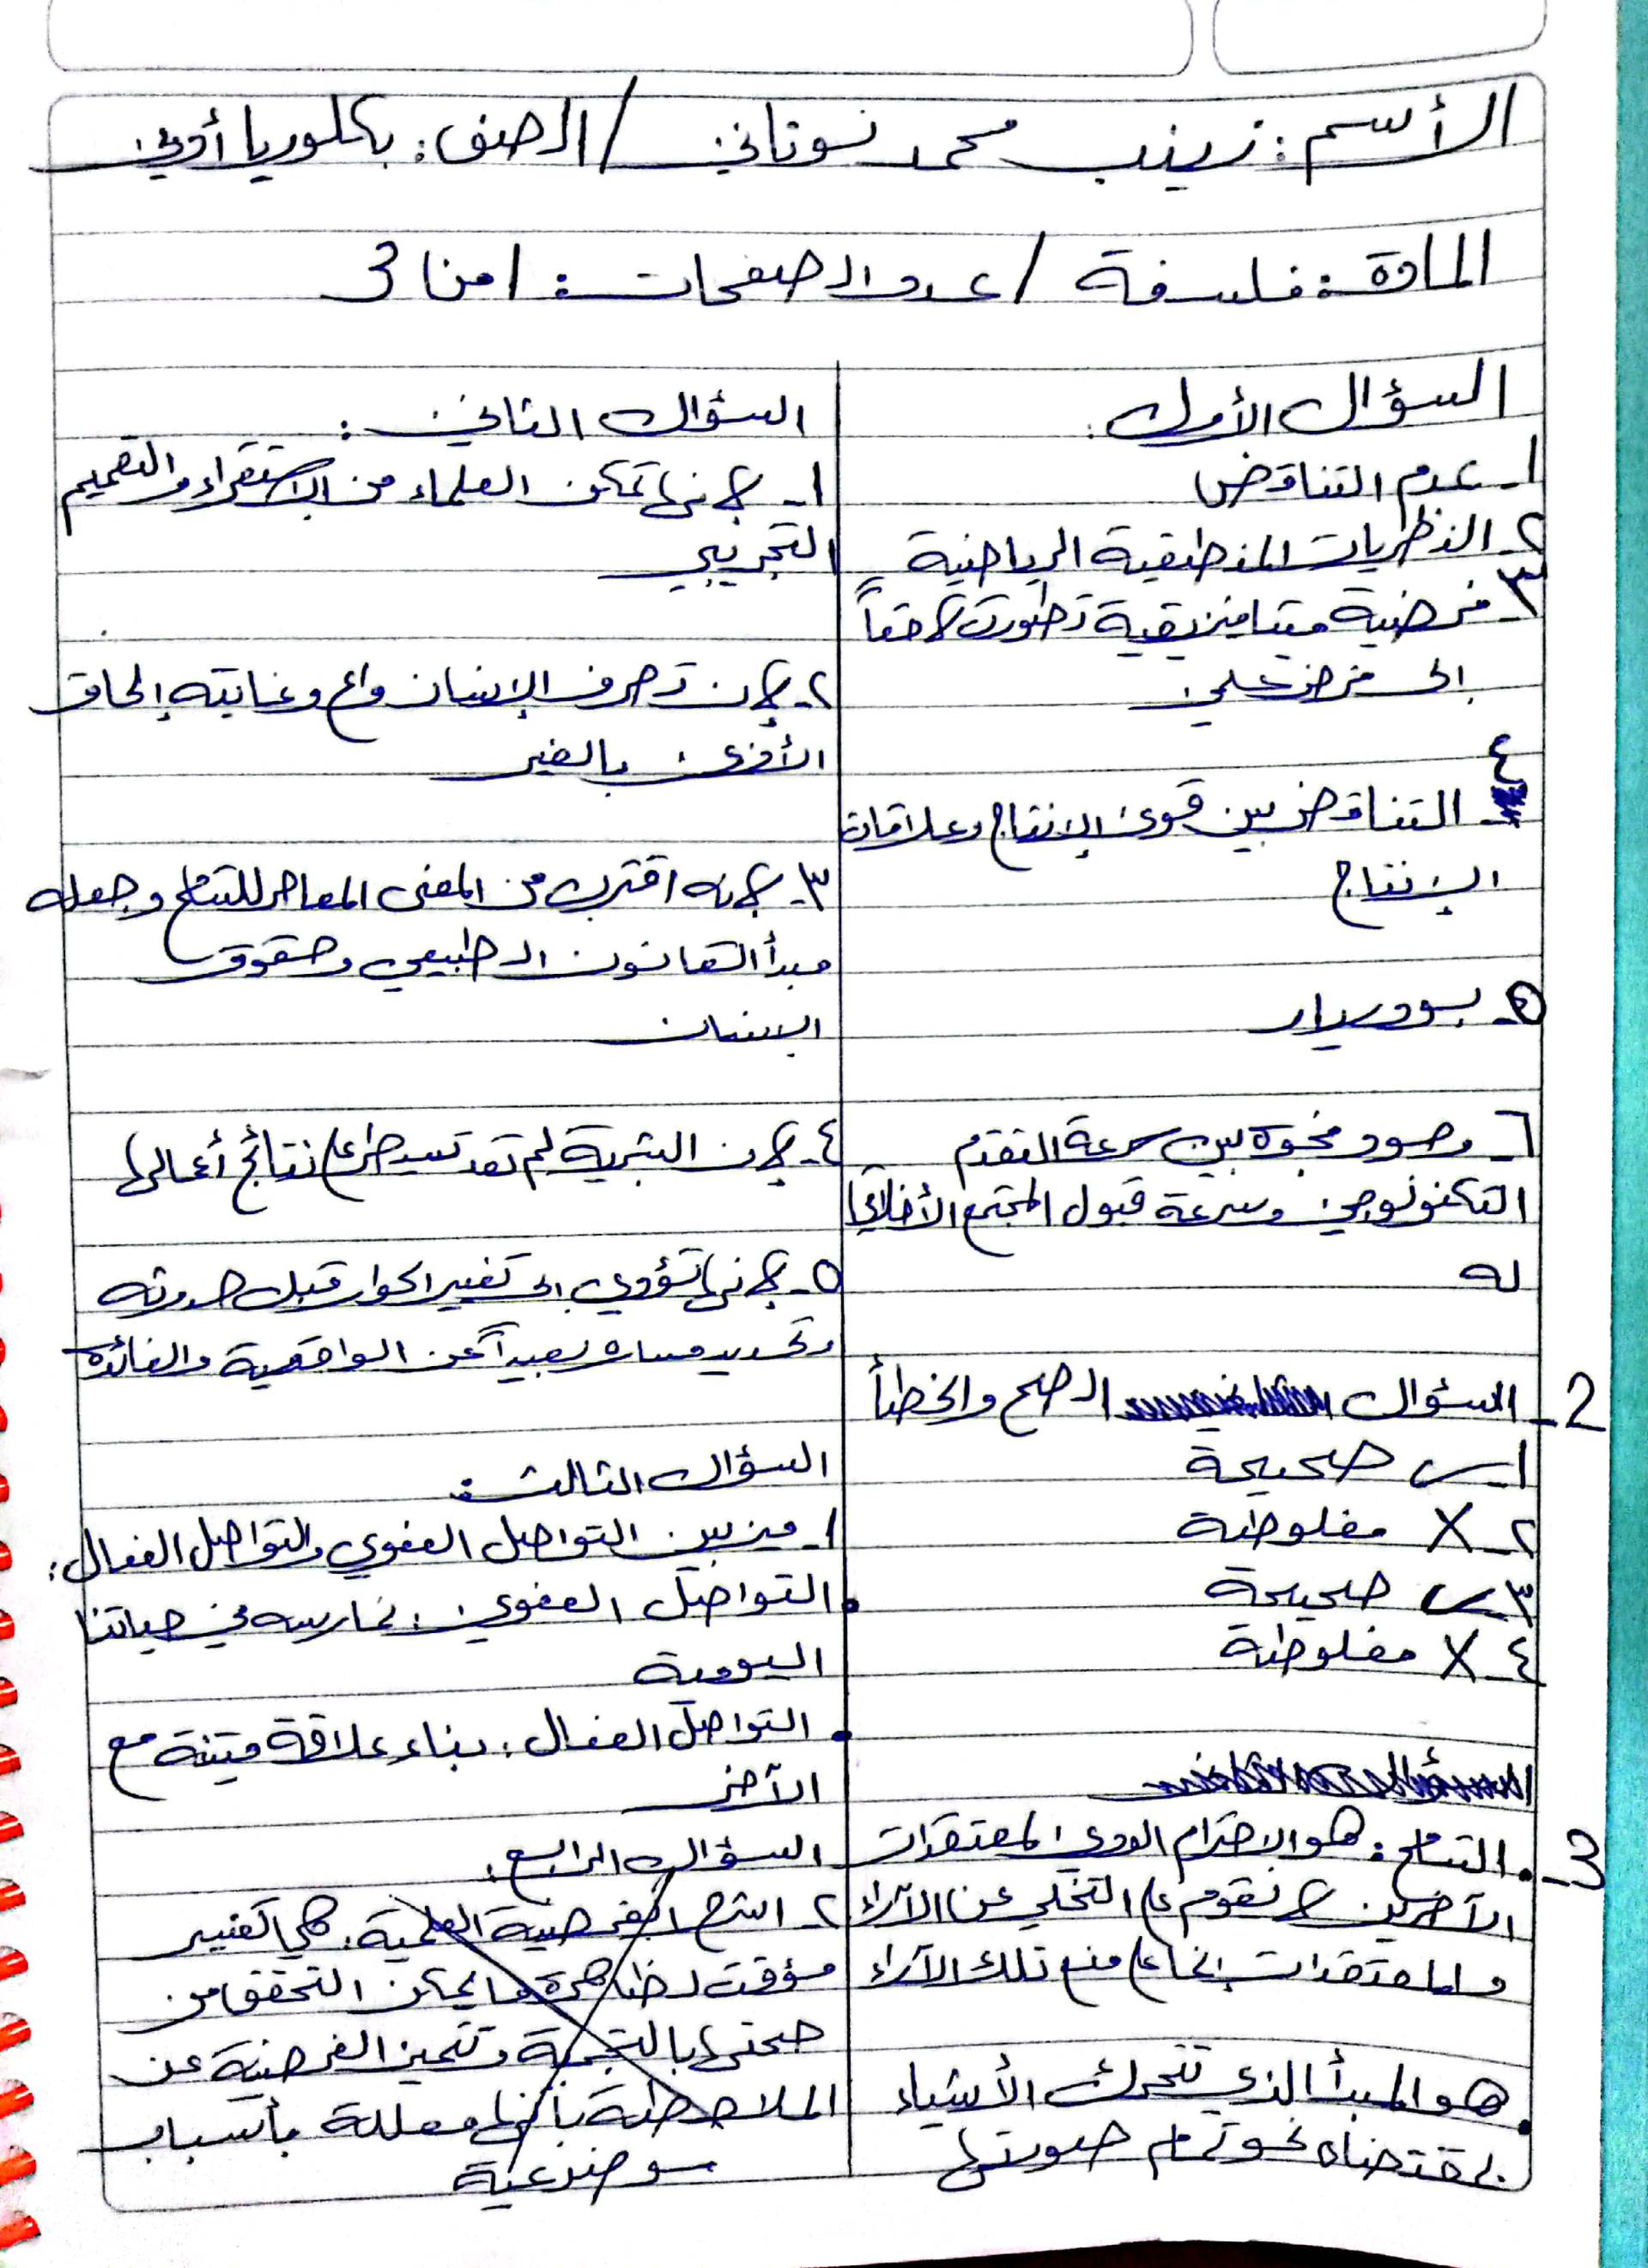 الأسم: زينب محمد نسوناني / الصف: بكلوريا أدبي
المادة: فلسفة / عدد الصفحات: 1 من 3
السؤال الأول:
1- عدم التناقض
2- النظريات المنطقية الرياضية
3- فرضية ميتافيزيقية تطورت لاحقاً
إلى فرض علمي
4- التناقض بين قوى الإنتاج وعلاقات
الإنتاج
5- بودريار
6- وجود فجوة بين سرعة التقدم
التكنولوجي وسرعة قبول المجتمع الأخلاقي
له
2- السؤال الصح والخطأ
1- صحيحة
2- X مغلوطة
3- صحيحة
4- X مغلوطة
3- • التسامح: هو الاحترام الودي لمعتقدات
الآخرين لا نقوم على التخلي عن الآراء
والمعتقدات إنما على منع تلك الآراء
• هو المبدأ الذي تتحرك الأشياء
بمقتضاه نحو تمام صورتها
السؤال الثاني:
1- لأنها تمكن العلماء من الاستقراء والتعميم
التجريبي
2- لأن تصرف الإنسان واع وغايته إلحاق
الأذى بالغير
3- لأنه اقترب من المعنى المعاصر للتسامح وجعله
مبدأ القانون الطبيعي وحقوق
الإنسان
4- لأن البشرية لم تعد تسيطر على نتائج أعمالها
5- لأنها تؤدي إلى تغيير الحوار قبل حدوثه
وتحديد مساره بعيداً عن الواقعية والفائدة
السؤال الثالث:
1- ميز بين التواصل العفوي والتواصل الفعال:
• التواصل العفوي: نمارسه في حياتنا
اليومية
• التواصل الفعال: بناء علاقة متينة مع
الآخر
السؤال الرابع:
2- اشرح الفرضية العلمية: هي تفسير
مؤقت لظاهرة ما يمكن التحقق من
صحتها بالتجربة وتتميز الفرضية عن
الملاحظة بأنها معللة بأسباب
موضوعية